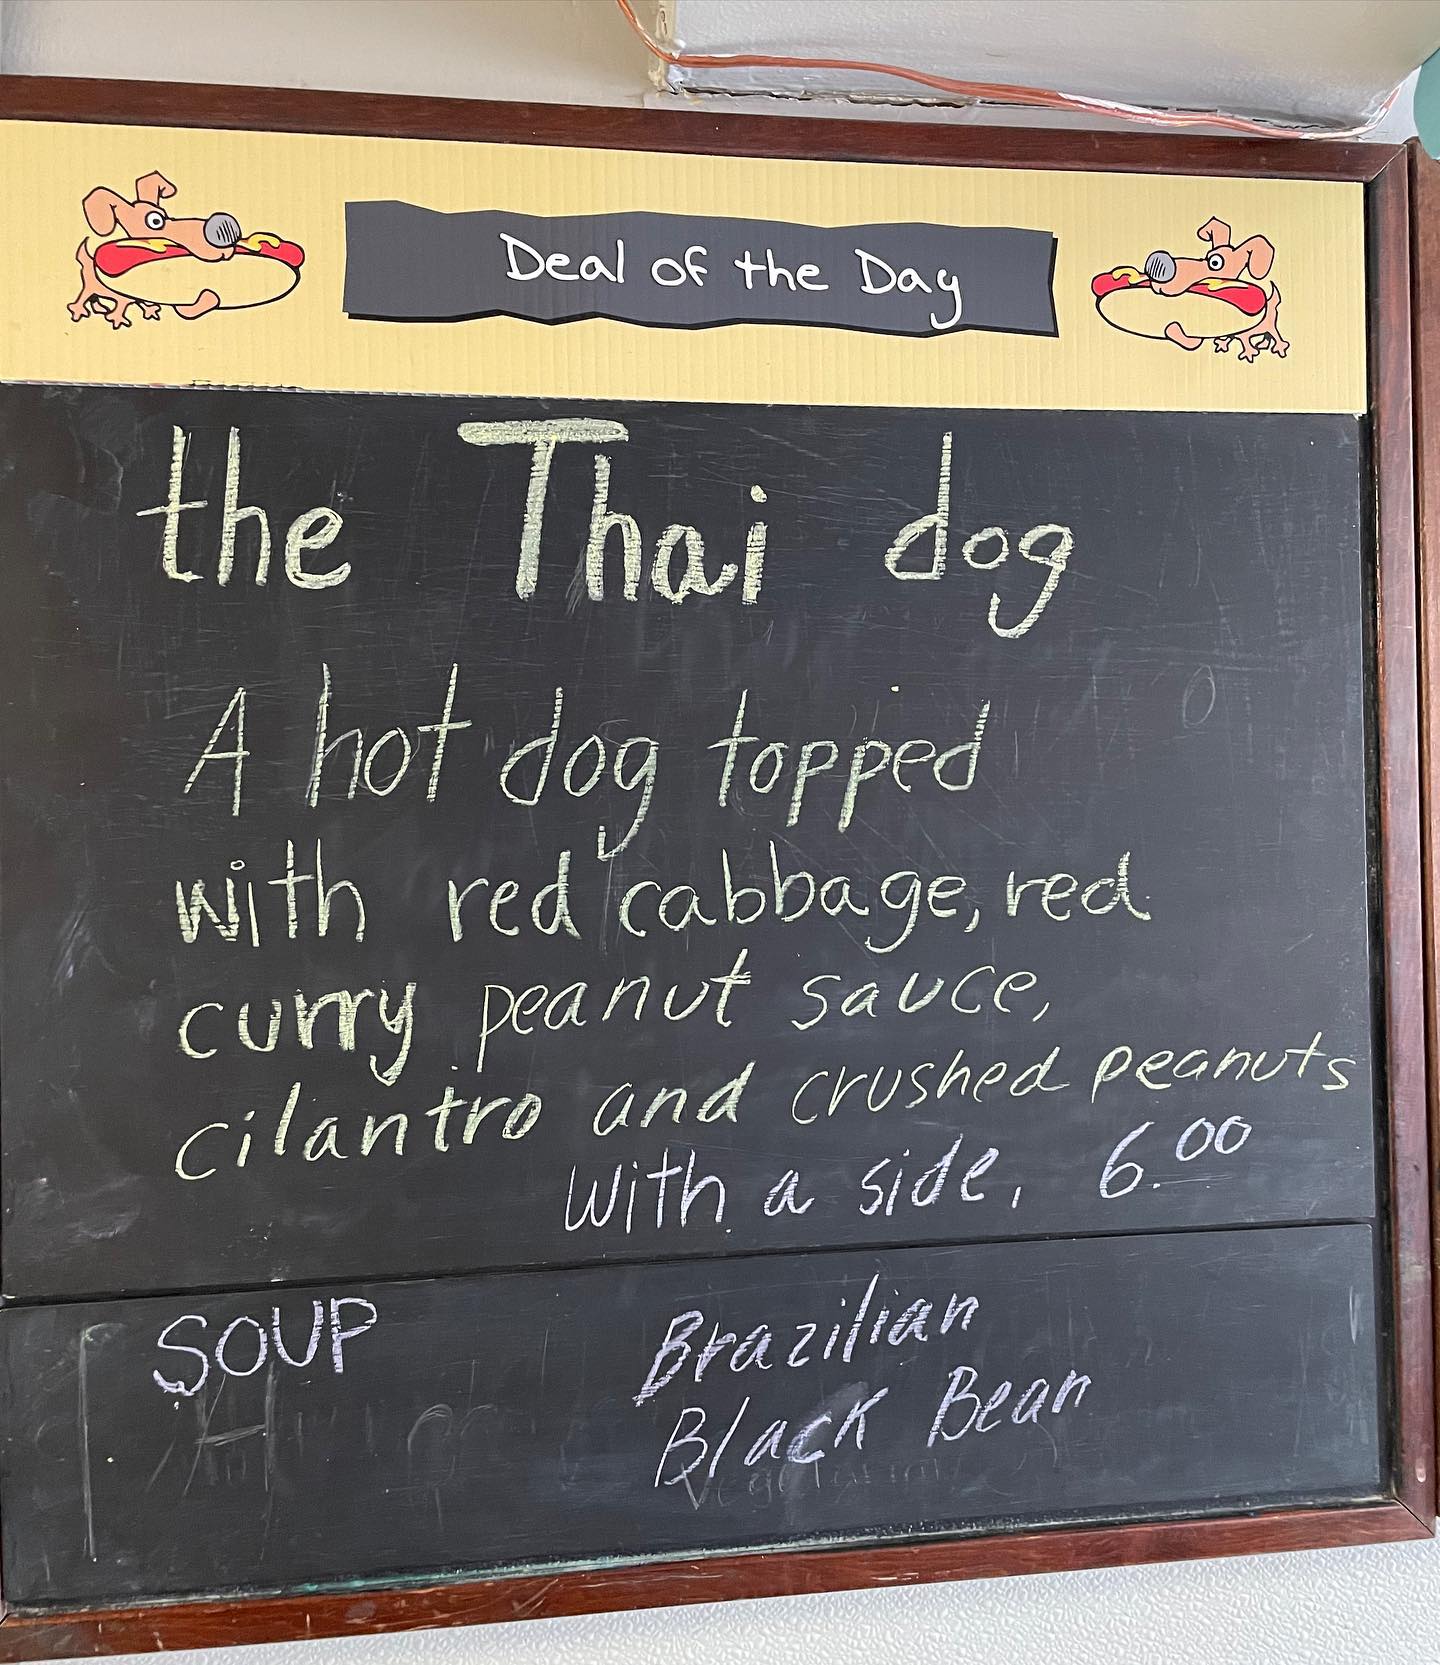 Deal of the Day
the Thai dog
A hot dog topped
with red cabbage, red
curry peanut sauce,
cilantro and crushed peanuts
with a side, 6.00
SOUP Brazilian
Black Bean